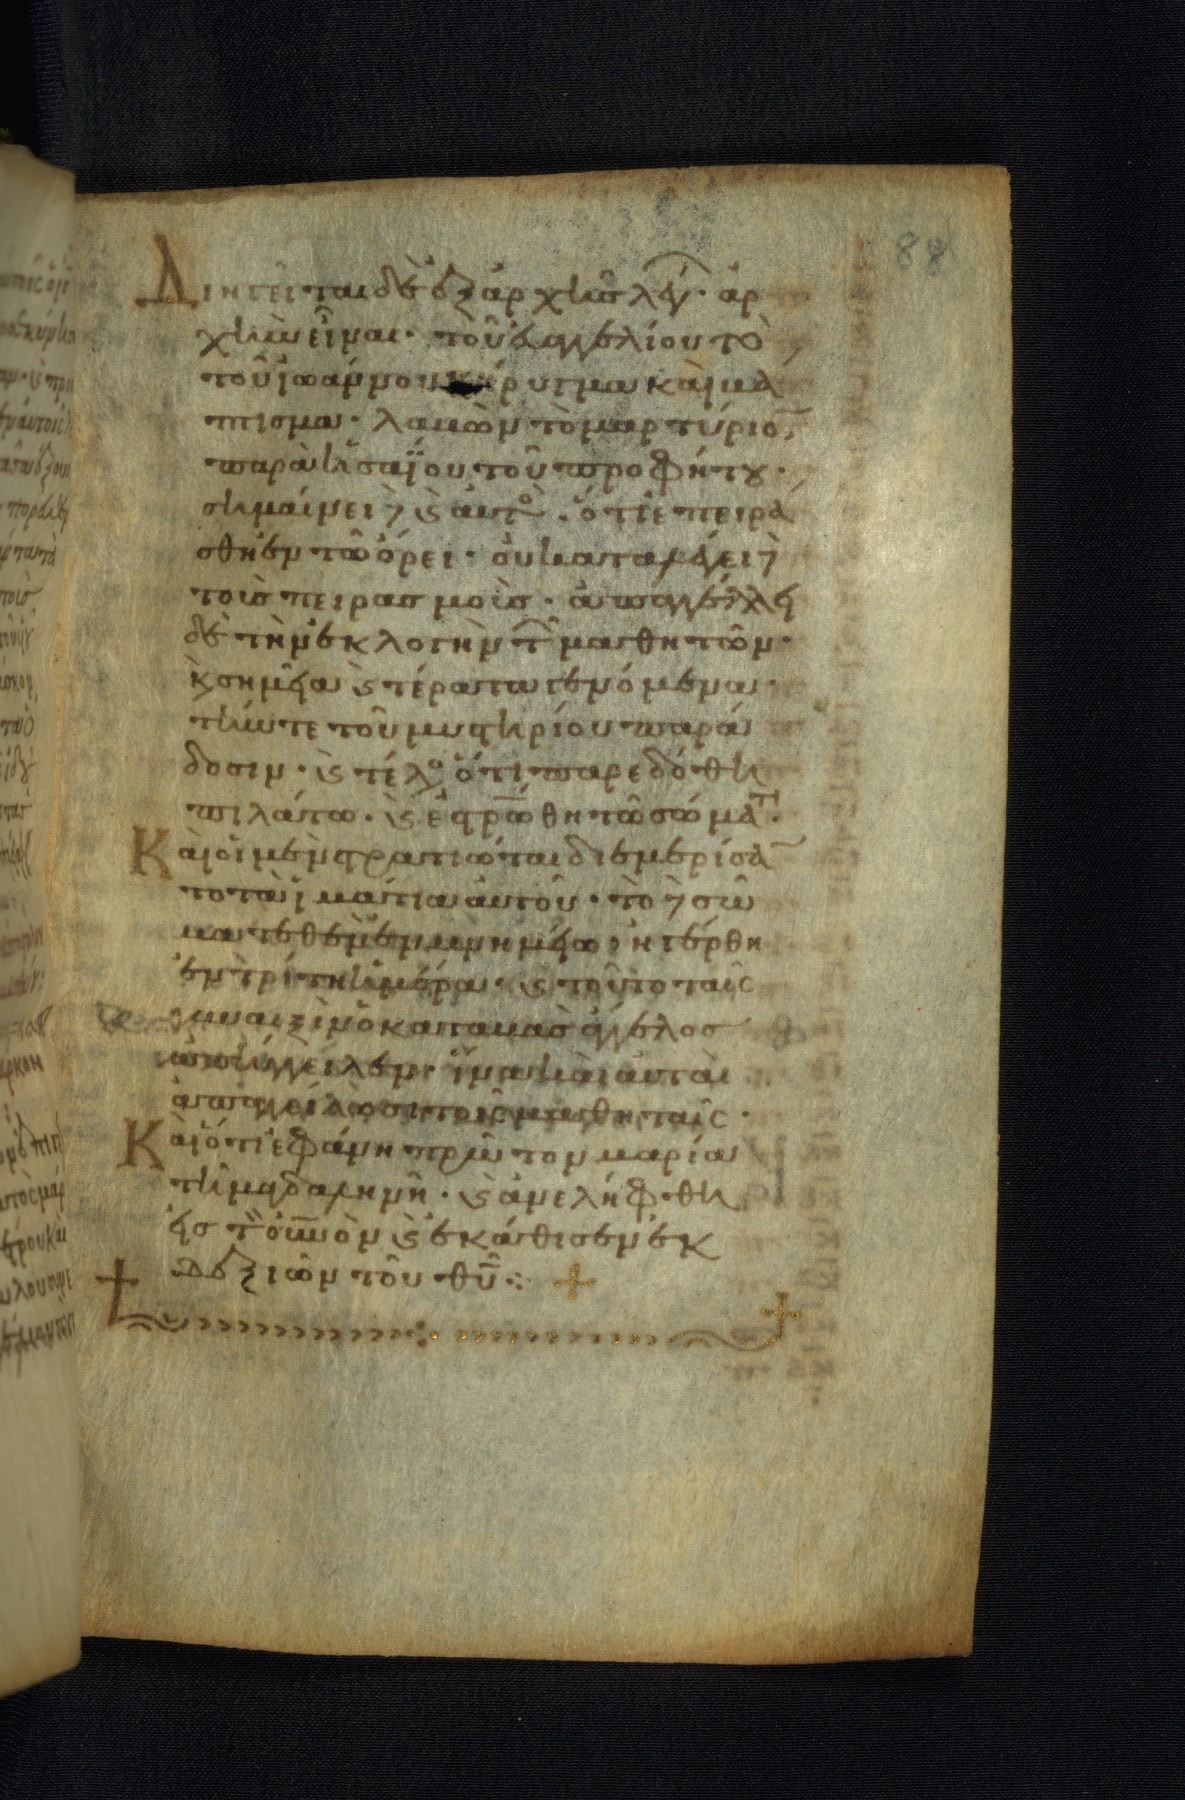 88
Διηγεῖται δὲ ἐξ ἀρχῆς λέγ· ἀρ
χὴν εἶναι· τοῦ εὐαγγελίου τὸ
τοῦ ἰωάννου κήρυγμα καὶ βά
πτισμα· λαβὼν τὸ μαρτύριον
παρὰ ἠσαΐου τοῦ προφήτου·
σημαίνει δὲ καὶ αὐτὸ ὅτι ἐπειρά
σθη ἐν τῶ ὄρει· οὐ καταλέγει δὲ
τοὺς πειρασμούς· ἀπαγγέλλει
δὲ τὴν ἐκλογὴν τῶν μαθητῶν·
καὶ σημεῖα καὶ τέρατα γενόμενα·
τήν τε τοῦ μυστηρίου παρά
δοσιν· καὶ τέλος ὅτι παρεδόθη
πιλάτω· καὶ ἐσταυρώθη τῶ σώματι·
Καὶ οἱ μὲν στρατιῶται διεμερίσαν
το τὰ ἱμάτια αὐτοῦ· τὸ δὲ σῶ
μα τεθὲν ἐν μνημείω ἠγέρθη
ἐν τρίτη ἡμέρα· καὶ τοῦτο ταῖς
γυναιξὶν ὁ καταβὰς ἄγγελος
ἀπήγγειλεν· ἵνα καὶ αὐταὶ
ἀπαγγείλωσι τοῖς μαθηταῖς·
Καὶ ὅτι ἐφάνη πρῶτον μαρία
τῆ μαγδαληνῆ· καὶ ἀνελήφθη
εἰς τὸν οὐνὸν καὶ ἐκάθισεν ἐκ
δεξιῶν τοῦ θυ